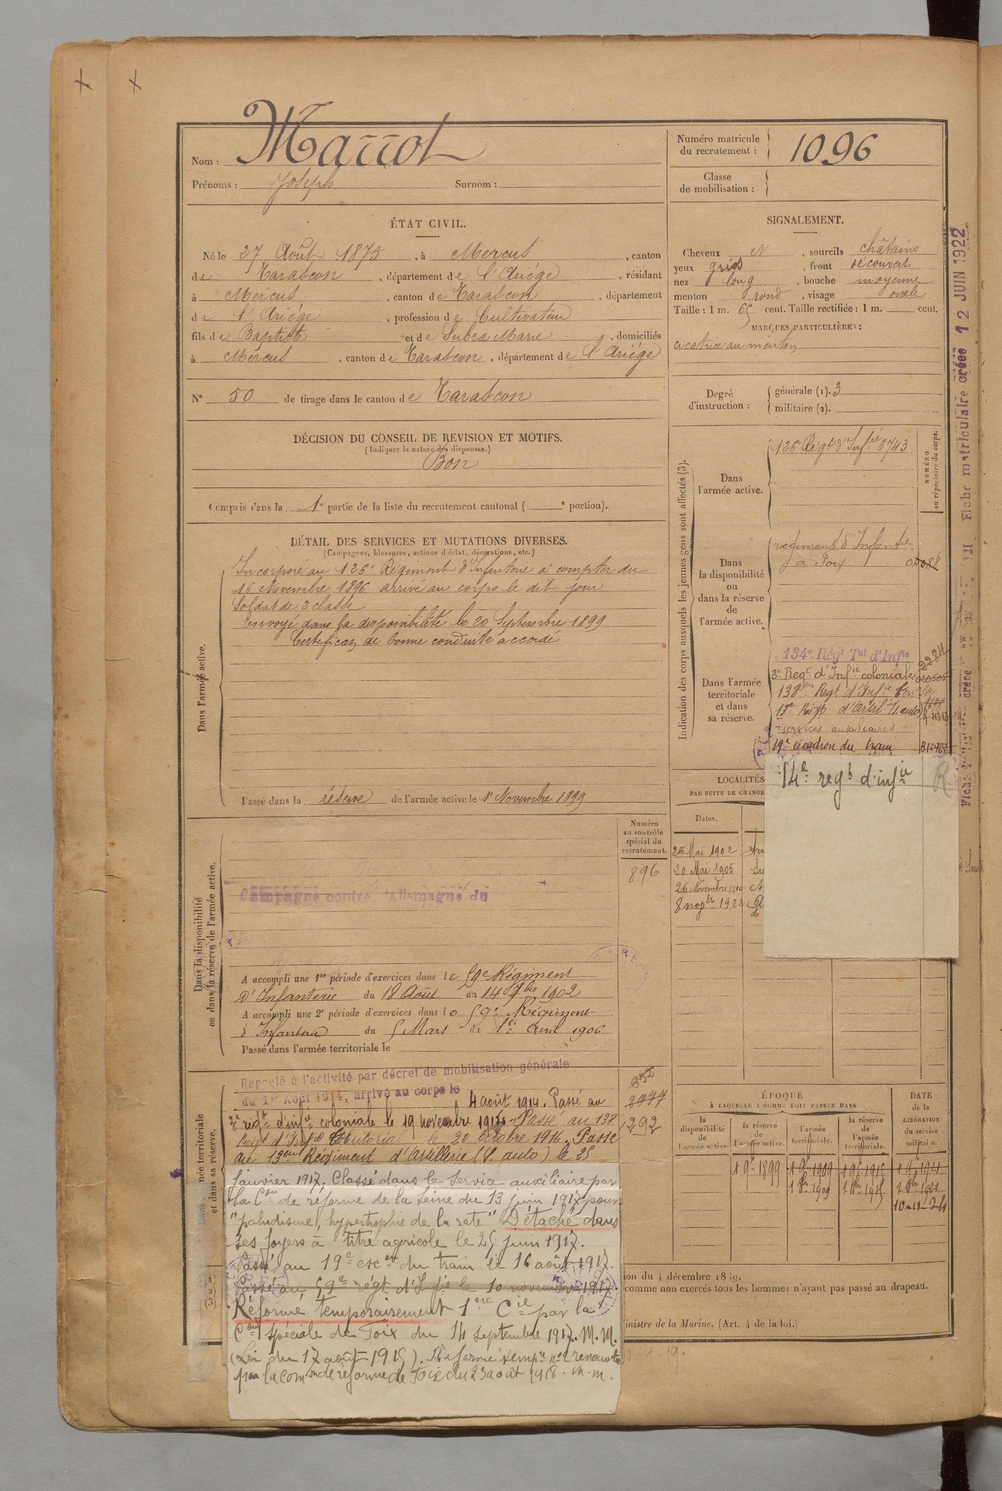 Nom : Marrot
Prénoms : Joseph Surnom :
Numéro matricule
du recrutement : 1096
Classe
de mobilisation :
ÉTAT CIVIL.
Né le 27 Août 1875, à Mercus, canton
de Tarascon, département de l'Ariège, résidant
à Mercus, canton de Tarascon, département
de l'Ariège, profession de Cultivateur
fils de Baptiste et de Subra Marie, domiciliés
à Mercus, canton de Tarascon, département de l'Ariège
N° 50 de tirage dans le canton de Tarascon
DÉCISION DU CONSEIL DE REVISION ET MOTIFS.
(Indiquer la nature des dispenses.)
Bon
Compris dans la 1e partie de la liste du recrutement cantonal ( e portion).
DÉTAIL DES SERVICES ET MUTATIONS DIVERSES.
(Campagnes, blessures, actions d'éclat, décorations, etc.)
Dans l'armée active.
Incorporé au 126e Régiment d'Infanterie à compter du
15 Novembre 1896 arrivé au corps le dit jour
Soldat de 2e classe
Envoyé dans la disponibilité le 20 Septembre 1899
Certificat de bonne conduite accordé
Passé dans la réserve de l'armée active le 1er Novembre 1899
Numéro
au contrôle
spécial du
recrutement.
896
Dans la disponibilité
ou dans la réserve de l'armée active.
Campagne contre l'Allemagne du
A accompli une 1re période d'exercices dans le 59e Régiment
d'Infanterie du 18 Août au 14 7bre 1902
A accompli une 2e période d'exercices dans le 59e Régiment
d'Infanterie du 5 Mars au 1er Avril 1906
Passé dans l'armée territoriale le
Rappelé à l'activité par décret de mobilisation générale
du 1er Août 1914, arrivé au corps le
4 août 1914. Passé au
3e régt d'infie coloniale le 19 novembre 1915 Passé au 138
Regt d'Infie Territoriale le 20 octobre 1916. Passé
au 13eme Régiment d'Artillerie (S. auto) le 25
Janvier 1917. Classé dans le service auxiliaire par
la Con de réforme de la Seine du 13 juin 1917 pour
"paludisme, hypertrophie de la rate" Détaché dans
ses foyers à titre agricole le 25 juin 1917.
Passé au 19e escon du train le 16 août 1917.
Passé au 59e régt d'Infie le 10 novembre 1917
Réformé temporairement 1ère Cie par la
Con spéciale de Foix du 14 septembre 1917. M. M.
(Loi du 17 août 1915). Réformé tempre n°2 renouvelé
par la Comon de réforme de Foix du 23 août 1918. M. M.
2444
1292
SIGNALEMENT.
Cheveux N, sourcils châtains
yeux gris, front découvert
nez long, bouche moyenne
menton rond, visage ovale
Taille : 1 m. 65 cent. Taille rectifiée : 1 m. cent.
MARQUES PARTICULIÈRES :
cicatrice au menton
Degré
d'instruction :
générale (1). 3
militaire (2).
Indication des corps auxquels les jeunes gens sont affectés (3).
NUMÉRO
au répertoire du corps.
Dans
l'armée active.
126 Régt d'Infie 6743
Dans
la disponibilité
ou
dans la réserve
de
l'armée active.
régiment d'Infanterie
à Foix
Dans l'armée
territoriale
et dans
sa réserve.
134e Régt Tal d'Infie
3e Regt d'Infie coloniale
138eme Regt d'Infie Terre
13e Régt d'Artil (S auto)
services auxiliaires
19e escadron du train
14e régt d'infie R
LOCALITÉS
PAR SUITE DE CHANGE
Dates.
25 Mai 1902
20 Mai 1905
26 Novembre 1910
8 novbre 1922
ÉPOQUE
À LAQUELLE L'HOMME DOIT PASSER DANS
la
disponibilité
de
l'armée active.
la réserve
de
l'armée active.
l'armée
territoriale.
la réserve
de
l'armée
territoriale.
DATE
de la
LIBÉRATION
du service
militaire.
1 9e 1899
1 8bre 1909
10-11-24
ion du 4 décembre 1889.
comme non exercés tous les hommes n'ayant pas passé au drapeau.
inistre de la Marine. (Art. 4 de la loi.)
Fiche matriculaire créée 12 JUIN 1922